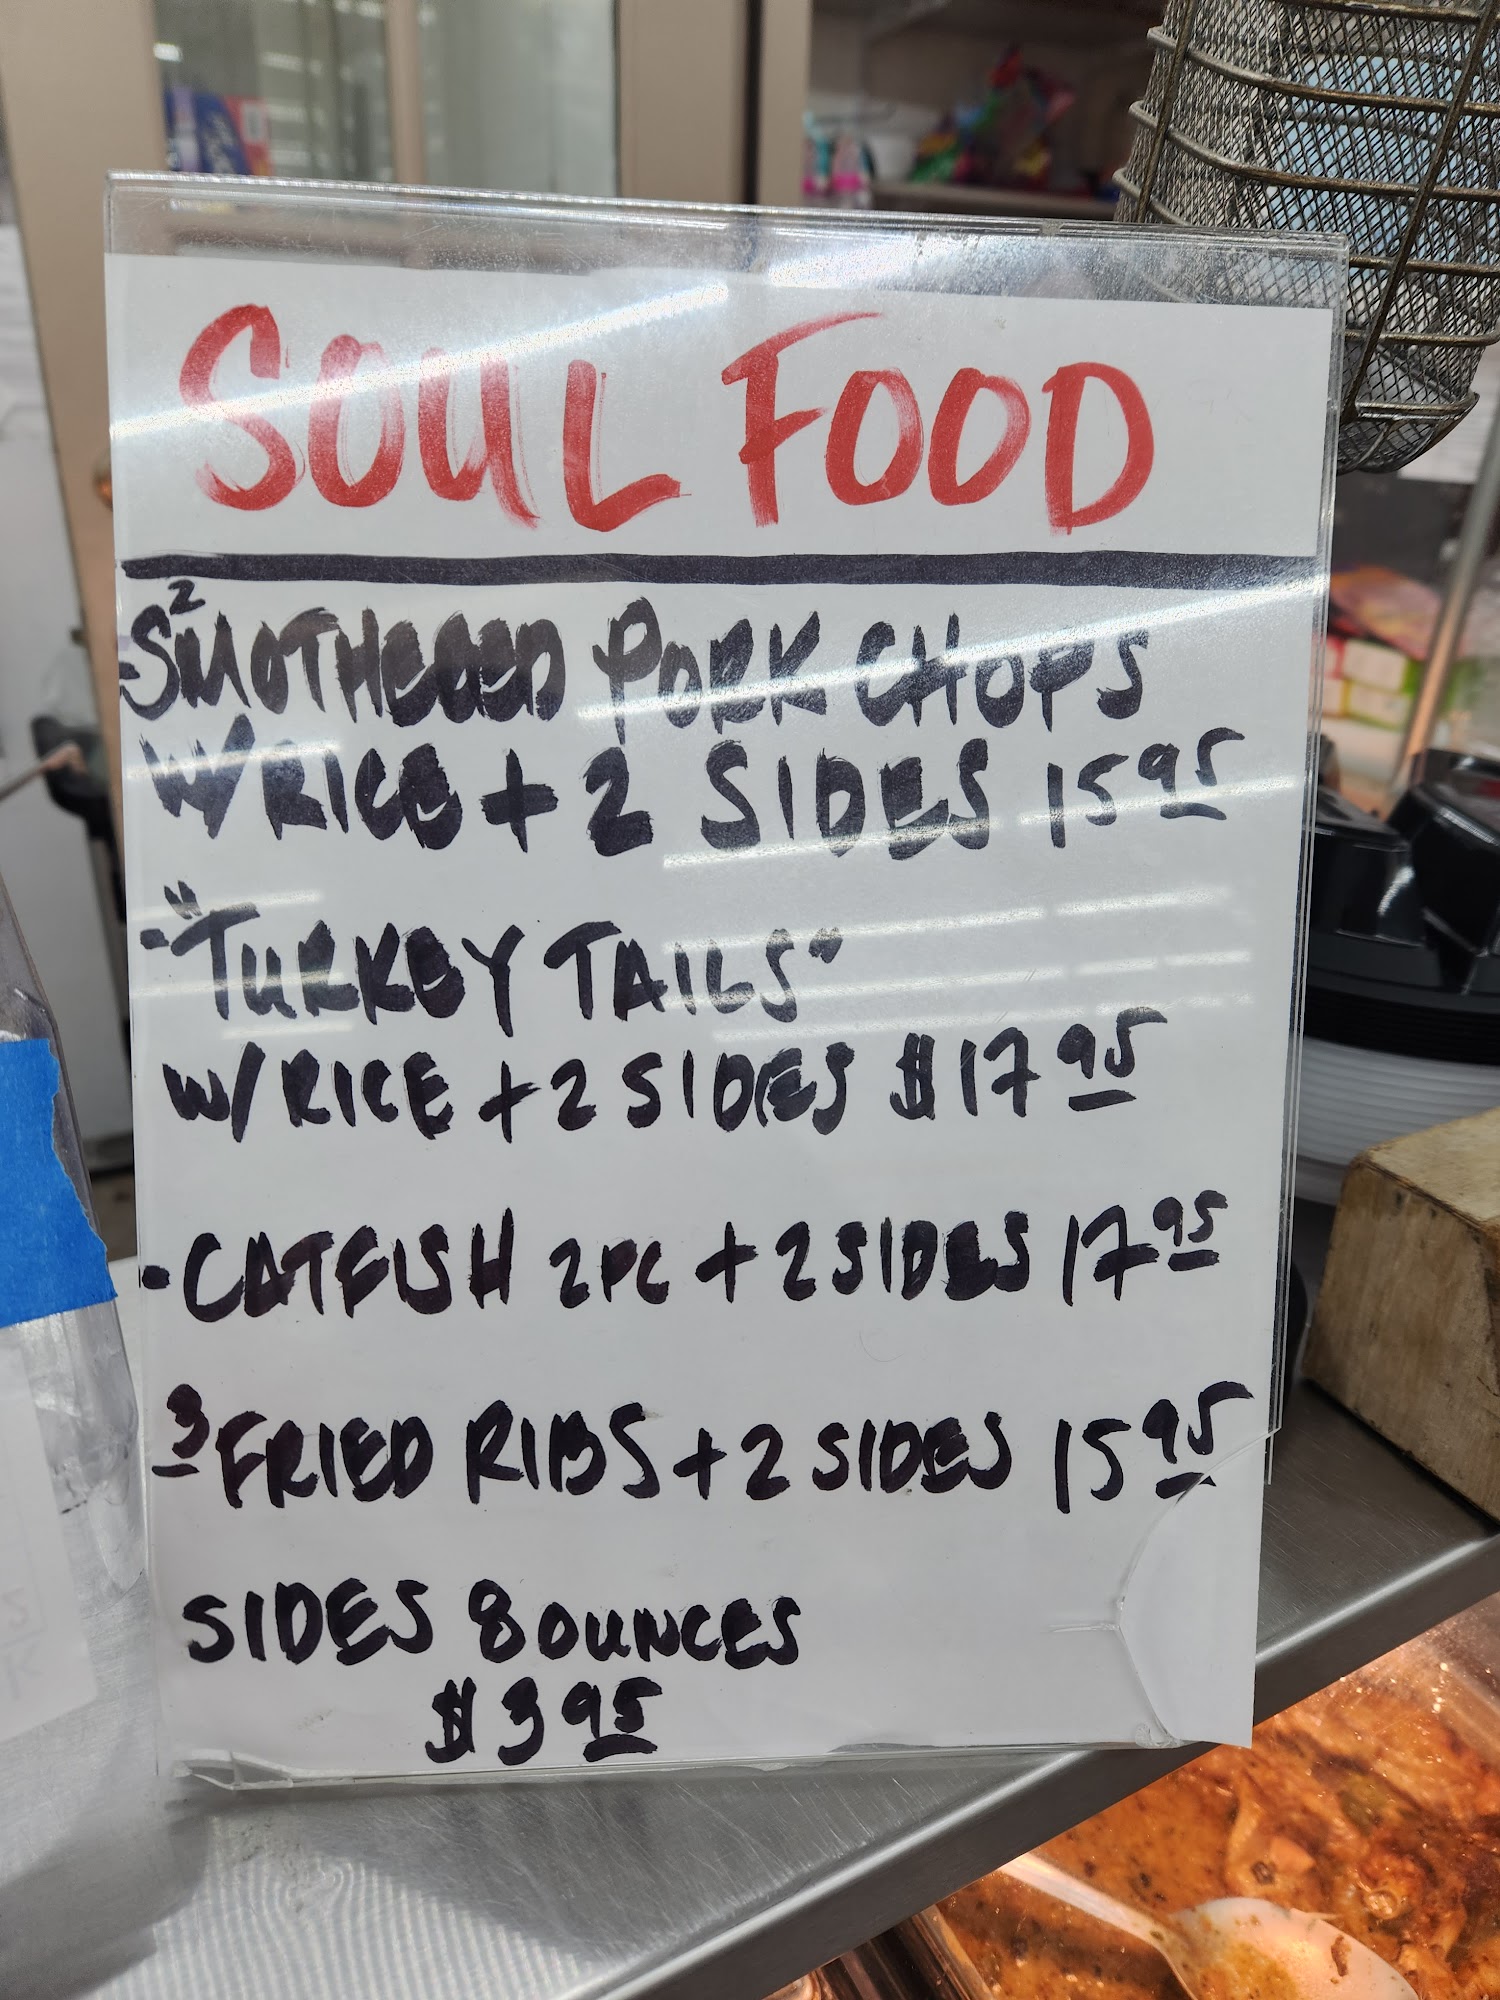 SOUL FOOD
2
-SMOTHERED PORK CHOPS
W/RICE + 2 SIDES 15 95
• "TURKEY TAILS"
W/RICE + 2 SIDES $17 95
• CATFISH 2PC + 2 SIDES 17 95
3 FRIED RIBS + 2 SIDES 15 95
SIDES 8 OUNCES
$3 95